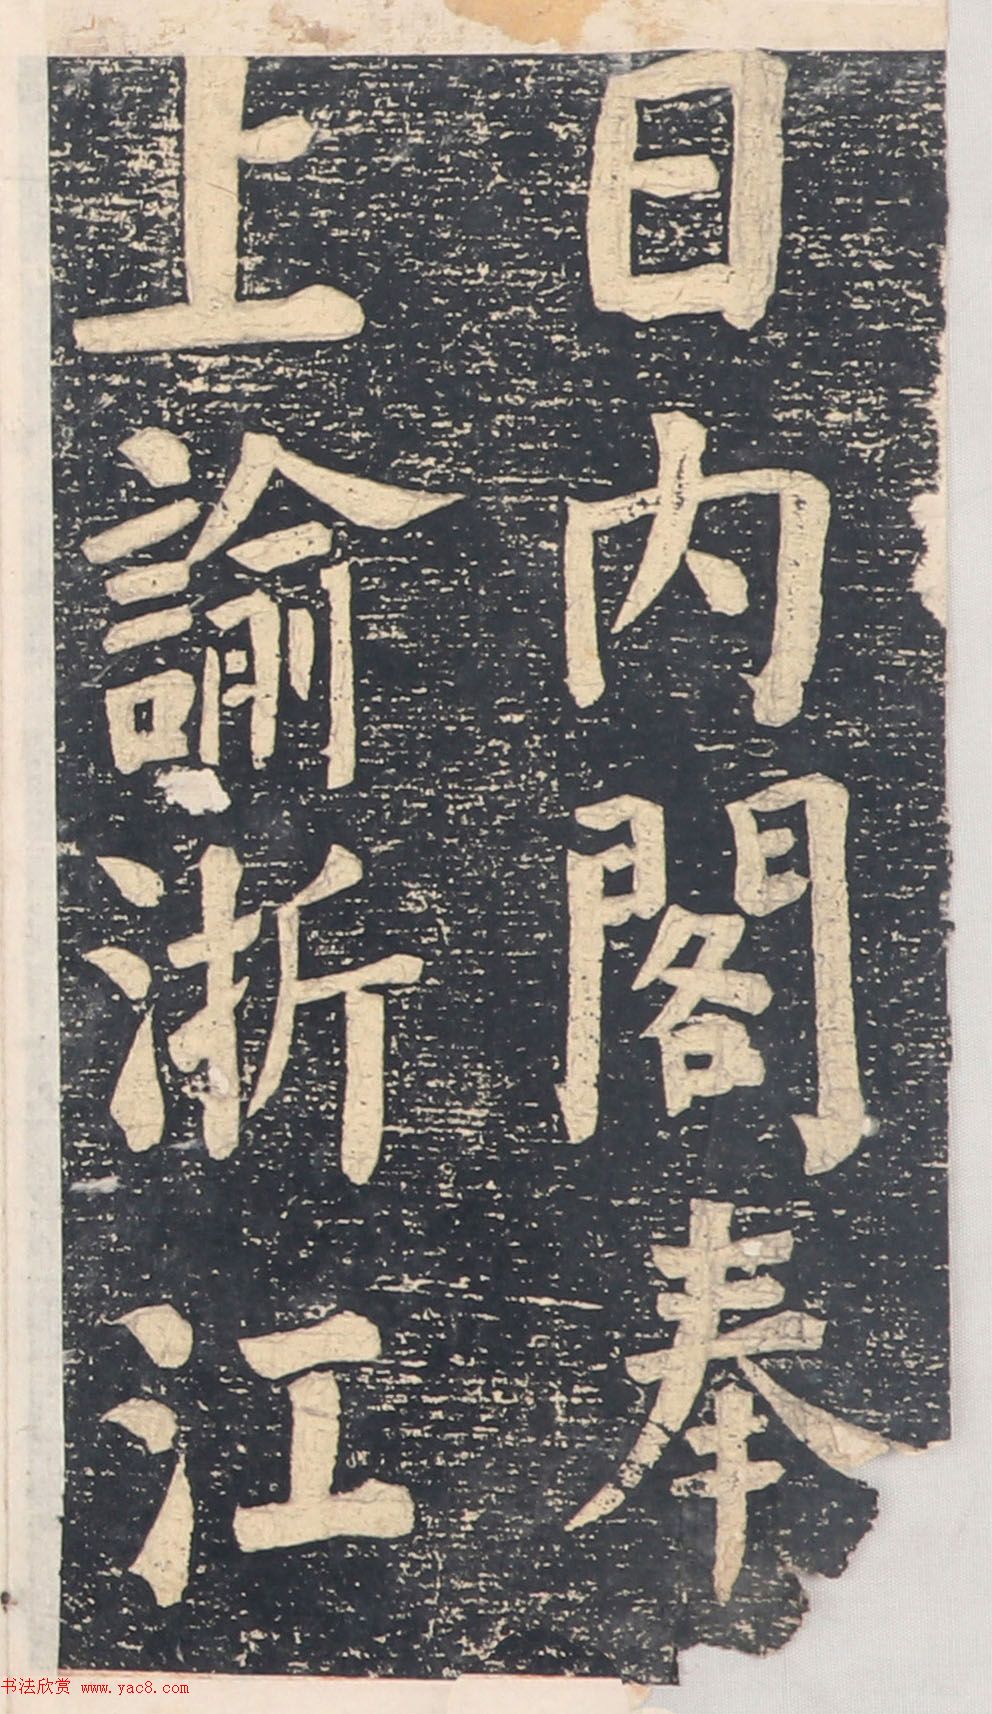 日内閣奉
上諭浙江
书法欣赏 www.yac8.com